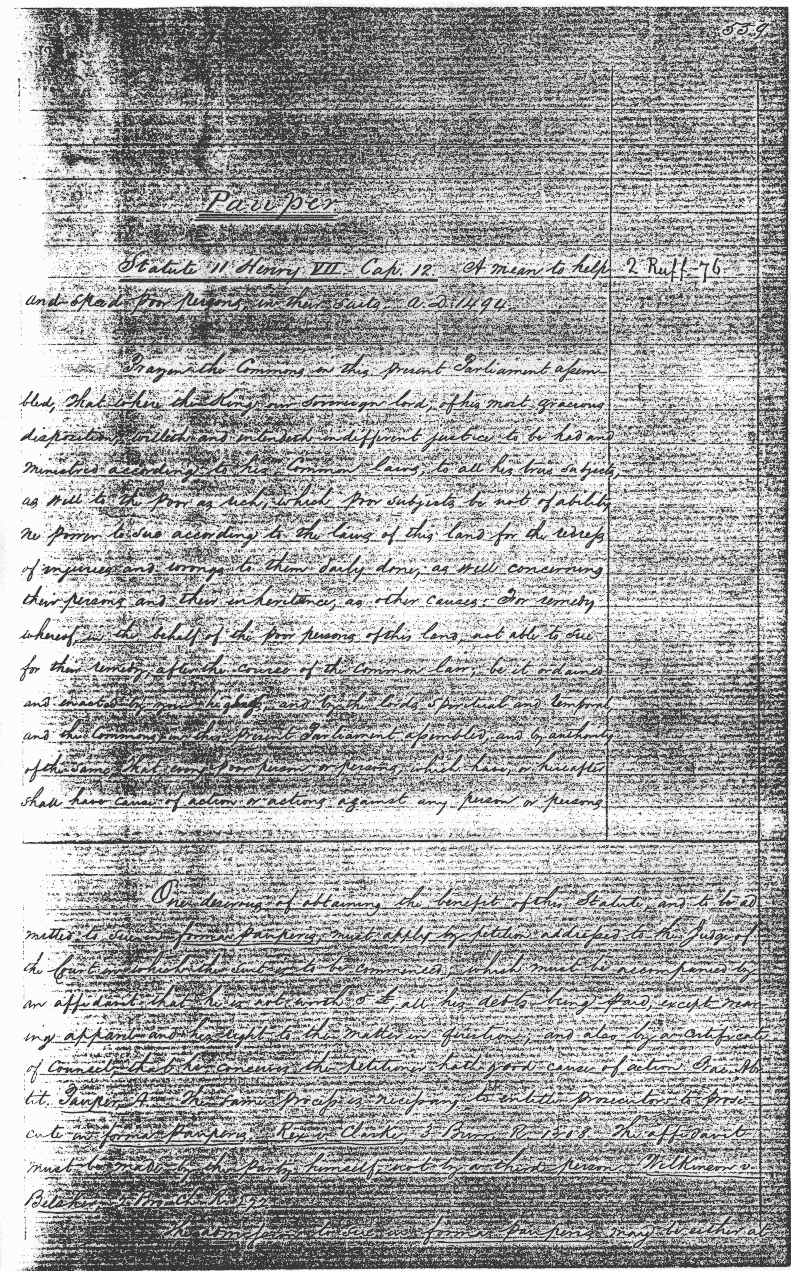 559
Pauper
Statute 11 Henry VII Cap. 12. A mean to help 2 Ruff. 76
and speed poor persons in their suits. A.D. 1494.
Prayen the Commons in this present Parliament assem-
bled, that where the King, our sovreign lord, of his most gracious
disposition, willeth and intendeth indifferent justice to be had and
ministred according to his Common laws, to all his true subjects,
as well to the poor as rich, which poor subjects be not of ability
ne power to sue according to the laws of this land for the redress
of injuries and wrongs to them daily done, as well concerning
their persons and their inheritance, as other causes: For remedy
whereof, in the behalf of the poor persons of this land, not able to sue
for their remedy, after the course of the common law; be it ordained
and enacted by your highness, and by the lords spiritual and temporal
and the Commons, in this present Parliament assembled, and by authority
of the same, that every poor person or persons, which have, or hereafter
shall have cause of action or actions against any person or persons
One desirous of obtaining the benefit of this Statute, and to be ad
mitted to sue in forma pauperis, must apply by petition addressed to the Judge of
the Court in which the suit is to be commenced, which must be accompanied by
an affidavit that he is not worth 5 £, all his debts being paid except wear
ing apparel and his right to the matter in question, and also by a certificate
of Counsel, that he conceives the petitioner hath good cause of action. Bac. Ab
tit. Pauper A. The same process is necessary to entitle prosecutors to prose
cute in forma pauperis. Rex v. Clarke, 3 Burr. R. 1308. The affidavit
must be made by the party himself, not by a third person. Wilkinson v.
Belsher, 2 Bro. Ch. R. 272.
The admission to sue in forma pauperis may be either at